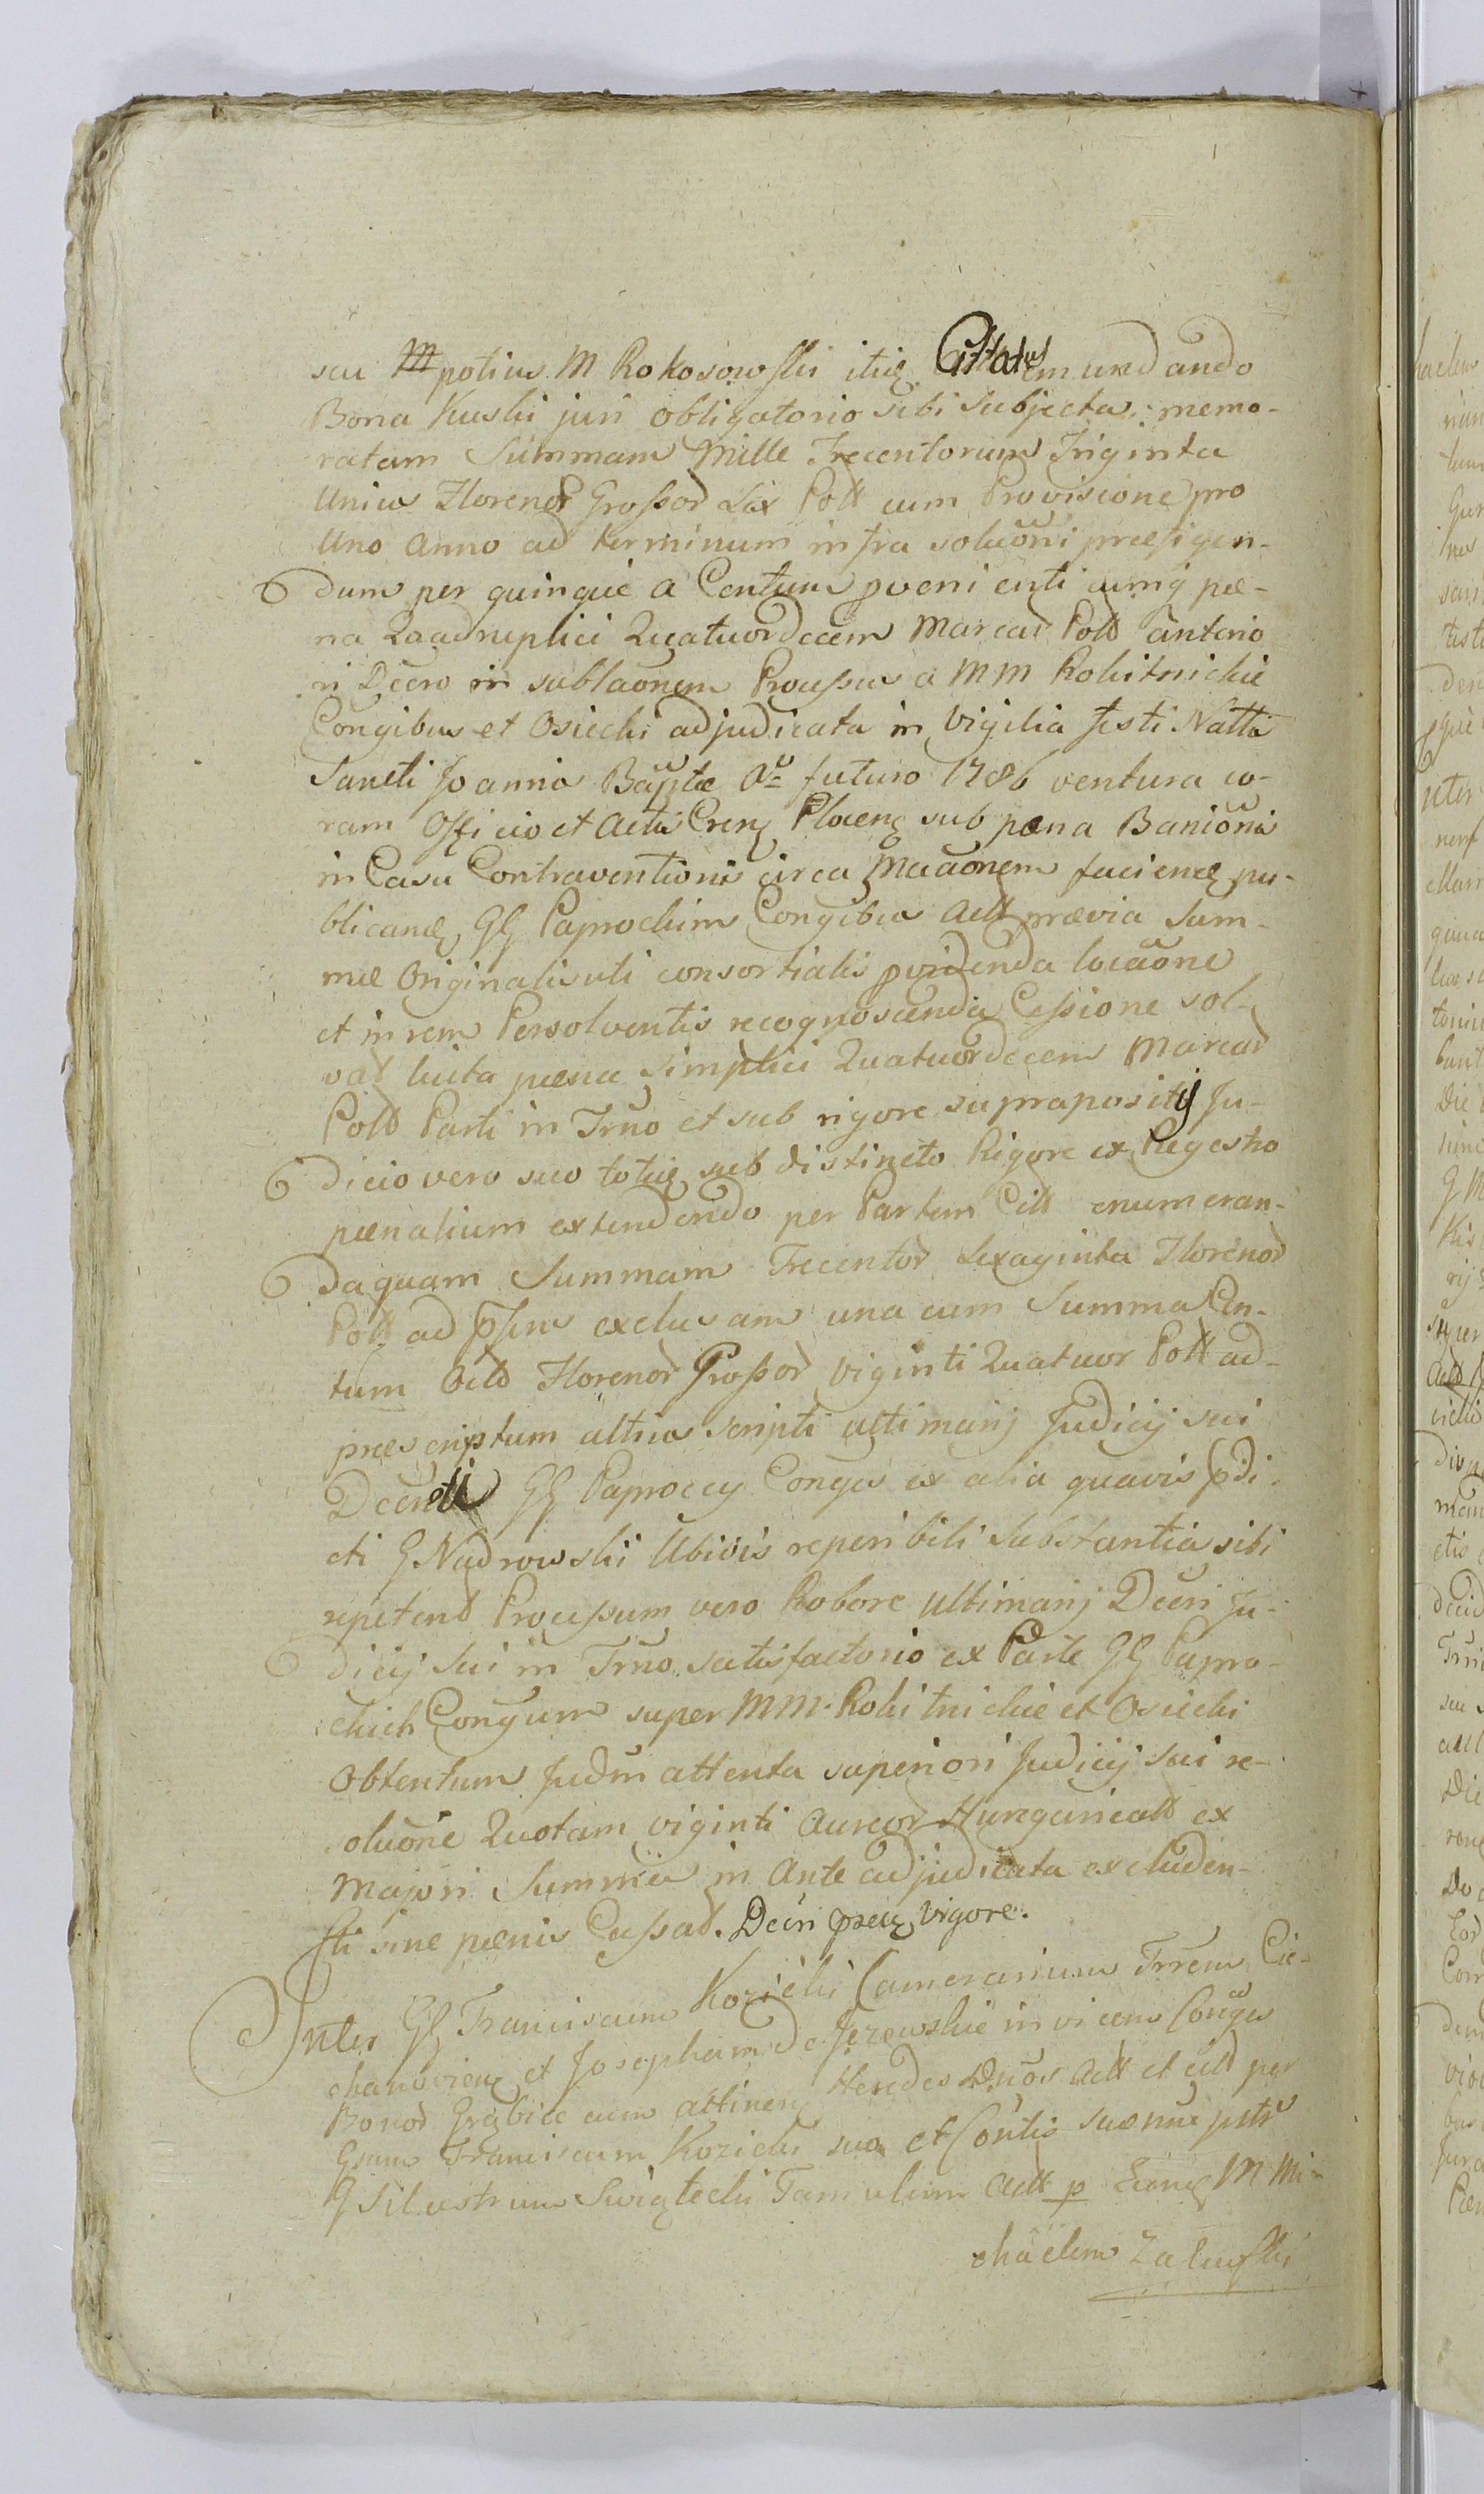 seu potius M Rokosowski itię Cittatus emundando
Bona Kuski juri obligatorio sibi Subjecta memo-
ratam Summam Mille Trecentorum Triginta
Unius Florenor Grossor Sex Poll cum Provisione pro
Uno anno ad terminum infra soluoni præfigen-
dum per quinque a Centum pveni enti cumq pæ-
na Quadruplici Quatuordecem Marcar Poll anterio
ri Decro in sublaonem Processus a MM Rokitnickie
Congibus et Osiecki adjudicata in Vigilia Festi Nattis
Sancti Joannis Baptæ Ao futuro 1786 ventura co-
ram Officio et Actis Cren Plocen sub pæna Banionis
in Casu Contraventionis circa faciend pu-
blicand GG Paprockim Congibus Actt prævia Sum-
mæ Originalis uti consortialis pvidenda locaone
et in rem Persolventis recognoscenda Cessione sol-
vat luita pæna simplici Quatuordecem Marcar
Poll Parti in Trno et sub rigore suprapositij Ju-
dicio vero suo toties sub distincto Rigore ex Regestro
pænalium extendendo per Partem Citt enumeran-
da quam Summam Trecentor Sexaginta Florenor
Poll ad exclusam una cum Summa Cen-
tum Octo Florenor Grossor Viginti Quatuor Poll ad
præscriptum altius scripti ultimarij Judicij sui
Decreti GG Paproccy Conges ex alia quavis pdi-
cti G Nadrowski Ubivis reperibili Substantia sibi
repetent Processum vero Robore Ultimarij Decri Ju-
dicij Sui in Trno satisfactorio ex Parte GG Papro-
ckich Congum super MM Rokitnickie et Osiecki
Obtentum Judm attenta superiori Judicij sui re-
soluone Quotam viginti Aureor Hungaricall ex
Majori Summa in Ante adjudicata excluden-
sti sine pænis Cassat. Decri pntis Vigore.
Inter GG Franciscum Kozicki Camerarium Trrem Cie-
chanovien et Josepham de Jezewskie invicem Conges
Bonor Grąbiec cum attinen Heredes Dnos Actt et citt per
Gsum Franciscum Kozicki suo et Contis suæ nne pttr
G Silvestrum Swiątecki Famulum Actt p M Mi-
chaelem Załuski